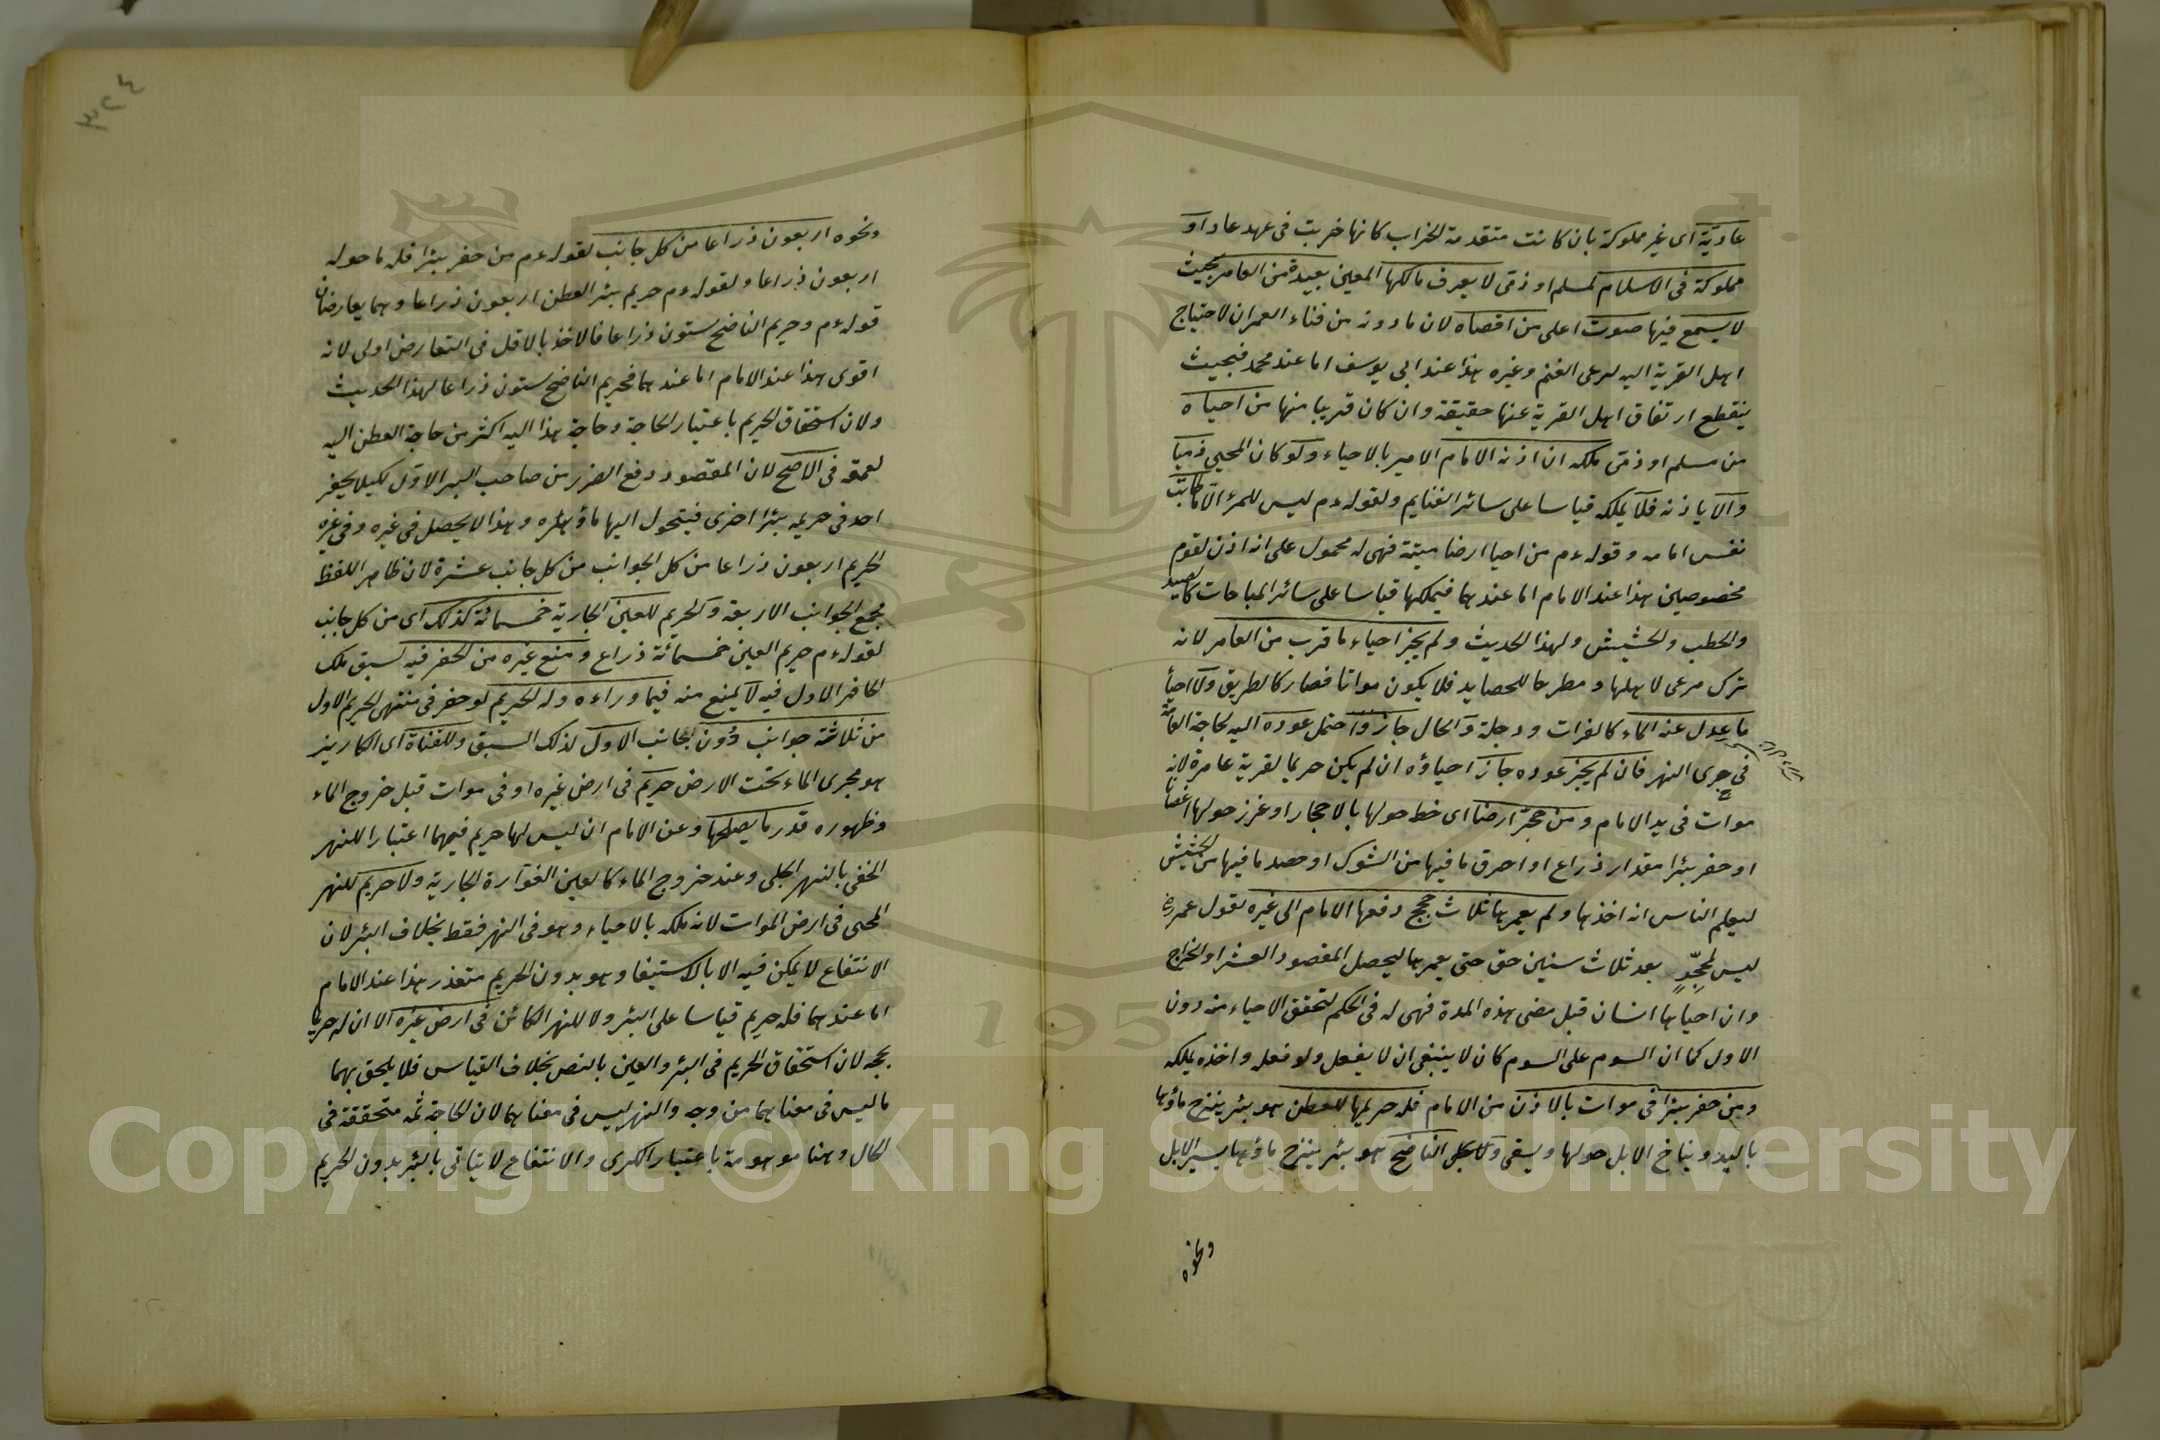 عادية اى غير مملوكة بان كانت متقدمة الخراب كانها خربت فى عهد عاد او
مملوكة فى الاسلام لمسلم او ذمى لا يعرف مالكها المعين بعيدة من العامر بحيث
لا يسمع فيها صوت اعلى من اقصاه لان ما دونه من فناء العمران لاحتياج
اهل القرية اليه لرعى الغنم وغيره هذا عند ابى يوسف اما عند محمد فبحيث
ينقطع ارتفاق اهل القرية عنها حقيقة وان كان قريبا منها من احياه
من مسلم او ذمى ملكه ان اذنه الامام الامير بالاحياء ولو كان المحيى ذميا
والا ياذنه فلا يملكه قياسا على سائر الغنايم ولقوله ءم ليس للمرء الا ما طابت
نفس امامه وقوله ءم من احيا ارضا ميتة فهى له محمول على انه اذن لقوم
مخصوصين هذا عند الامام اما عندهما فيملكها قياسا على سائر المباحات كالصيد
والحطب والحشيش ولهذا الحديث ولم يجز احياء ما قرب من العامر لانه
ترك مرعى لاهلها ومطرحا للحصايد فلا يكون مواتا فصار كالطريق ولا احيأ
ما عدل عنه الماء كالفرات ودجلة والحال جاز واحتمل عوده اليه لحاجة العامة
فى جرى النهر فان لم يجز عوده جاز احياؤه ان لم يكن حريما لقرية عامرة لانه
موات فى يد الامام ومن حجر ارضا اى خط حولها بالاحجار او غرز حولها اغصانا
او حفر بئرا مقدار ذراع او احرق ما فيها من الشوك او حصد ما فيها من الحشيش
ليعلم الناس انه اخذها ولم يعمرها ثلاث حجج دفعها الامام الى غيره لقول عمر رض
ليس لمحجر بعد ثلاث سنين حق حتى يعمرها ليحصل المقصود العشر او الخراج
وان احياها انسان قبل مضى هذه المدة فهى له فى الحكم لتحقق الاحياء منه دون
الاول كما ان السوم على السوم كان لا ينبغى ان لا يفعل ولو فعل واخذه يملكه
ومن حفر بئرا فى موات بالاذن من الامام فله حريمها للعطن هو بئر ينزح ماؤها
باليد ويناخ الابل حولها ويسقى ولا على الناضح هو بئر ينزح ماؤها بسير الابل
ونحوه
٣٢٤
ونحوه اربعون ذراعا من كل جانب لقوله ءم من حفر بئرا فله ما حوله
اربعون ذراعا ولقوله ءم حريم بئر العطن اربعون ذراعا وهما يعارضان
قوله ءم وحريم الناضح ستون ذراعا فالاخذ بالاقل فى التعارض اولى لانه
اقوى هذا عند الامام اما عندهما فحريم الناضح ستون ذراعا لهذا الحديث
ولان استحقاق الحريم باعتبار الحاجة وحاجة هذا اليه اكثر من حاجة العطن اليه
لعمقه فى الاصح لان المقصود دفع الضرر من صاحب البير الاول لكيلا يحفر
احد فى حريمه بئرا اخرى فيتحول اليها ماؤ بئره وهذا لا يحصل فى غيره وفى غيره
الحريم اربعون ذراعا من كل الجوانب من كل جانب عشرة لان ظاهر اللفظ
يجمع الجوانب الاربعة والحريم للعين الجارية خمسمائة كذلك اى من كل جانب
لقوله ءم حريم العين خمسمائة ذراع ومنع غيره من الحفر فيه لسبق ملك
الحافر الاول فيه لا يمنع منه فيما وراءه وله الحريم لو حفر فى منتهى الحريم الاول
من ثلاثة جوانب دون الجانب الاول لذلك السبق وللقناة اى الكاريز
هو مجرى الماء تحت الارض حريم فى ارض غيره او فى موات قبل خروج الماء
وظهوره قدر ما يصلحها وعن الامام ان ليس لها حريم فيهما اعتبارا للنهر
الخفى بالنهر الجلى وعند خروج الماء كالعين الفوارة الجارية ولا حريم للنهر
المحى فى ارض الموات لانه ملكه بالاحياء وهو فى النهر فقط بخلاف البئر لان
الانتفاع لا يمكن فيه الا بالاستيفا وهو بدون الحريم متعذر هذا عند الامام
اما عندهما فله حريم قياسا على البئر ولا للنهر الكائن فى ارض غيره الا ان له حريما
بحجة لان استحقاق الحريم فى البئر والعين بالنص بخلاف القياس فلا يلحق بهما
ما ليس فى معناهما من وجه والنهر ليس فى معناهما لان الحاجة ثمه متحققة فى
الحال وهنا موهومة باعتبار الكرى والانتفاع لا يتاتى بالبئر بدون الحريم
Copyright © King Saud University
195